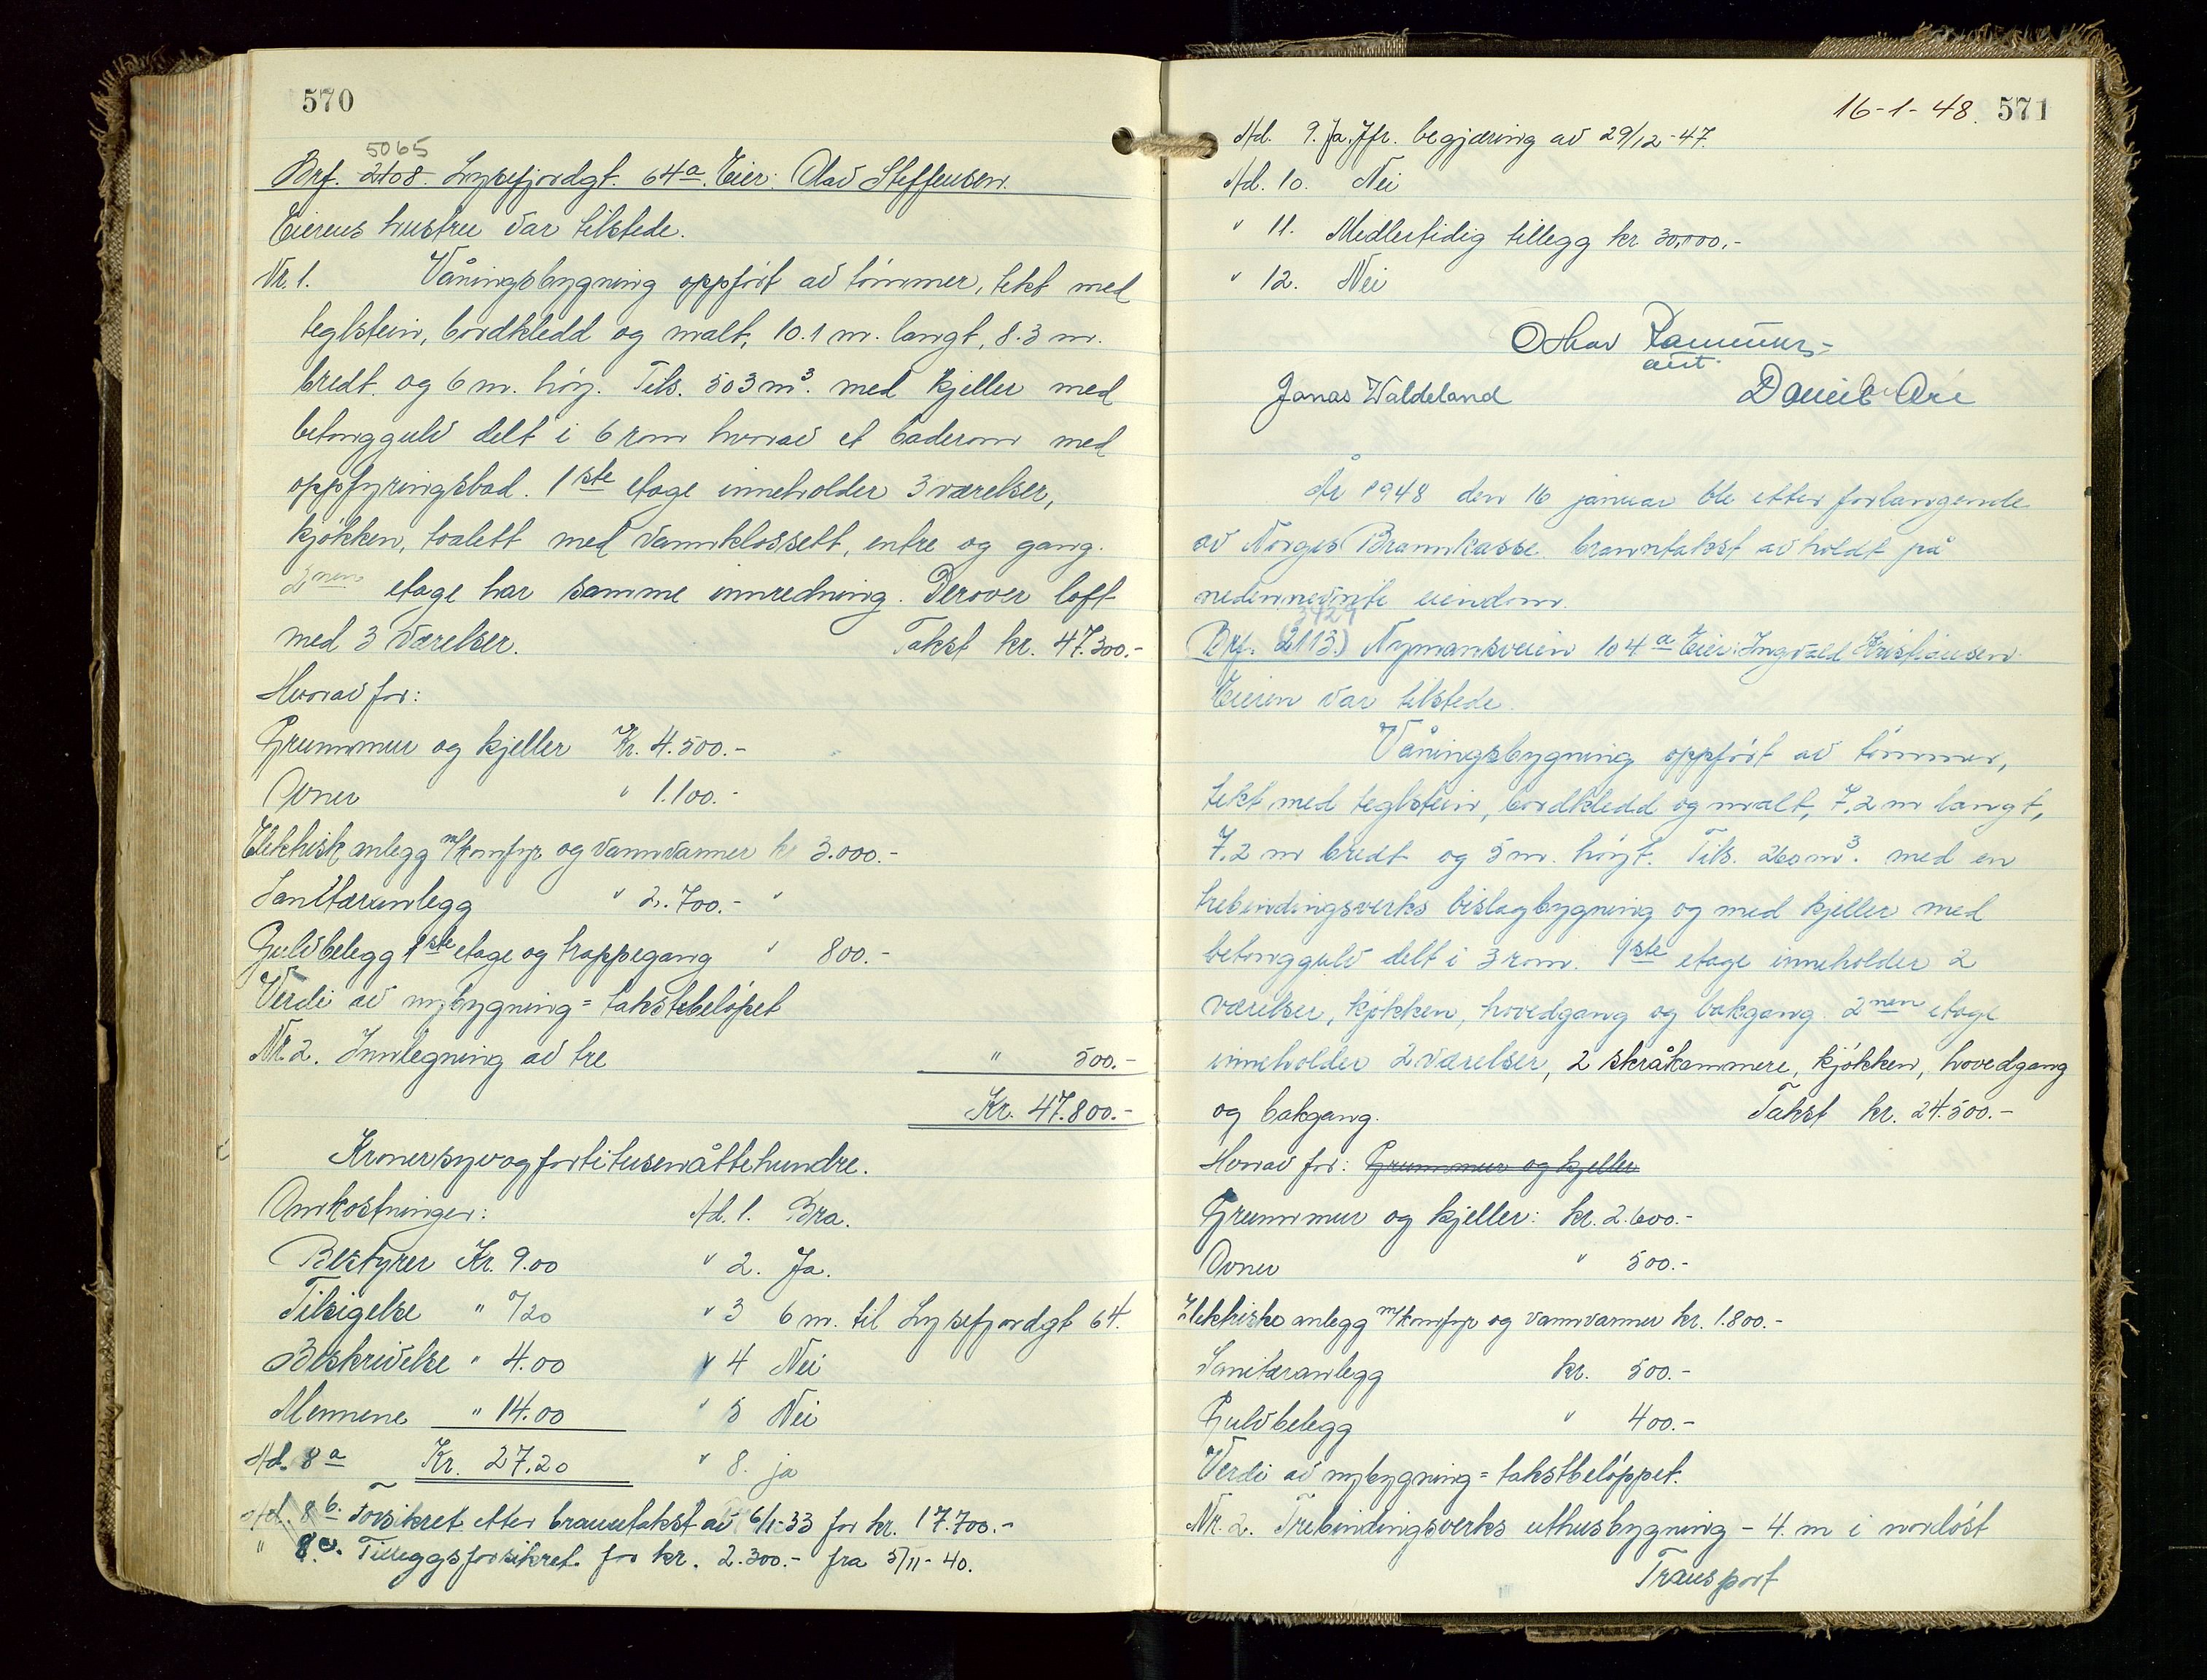 570
5065
Brf. 2108. Lysefjordgt. 64a. Eier: Olav Steffensen.
Eierens hustru var tilstede.
Nr. 1. Våningsbygning oppført av tømmer, tekt med
teglstein, bordkledd og malt, 10.1 m. langt, 8.3 m.
bredt og 6 m. høy. Tils. 503 m³. med kjeller med
betonggulv delt i 6 rom hvorav et baderom med
oppfyringsbad. 1ste etage inneholder 3 værelser,
kjøkken, toalett med vannklossett, entre og gang.
2nen etage har samme innredning. Derover loft
med 3 værelser. Takst kr. 47.300.-
Hvorav for:
Grunnmur og kjeller Kr. 4.500.-
Ovner " 1.100.-
Elektrisk anlegg m/komfyr og vannvarmer kr 3.000.-
Sanitæranlegg " 2.700.- "
Gulvbelegg 1ste etage og trappegang " 800.-
Verdi av nybygning = takstebeløpet
Nr. 2. Innlegning av tre " 500.-
Kr. 47.800.-
Kronersyvogførtitusenåttehundre.
Omkostninger: Ad. 1. Bra.
Bestyrer Kr. 9.00 " 2. Ja.
Tilsigelse " 0/20 " 3 6 m. til Lysefjordgt 64.
Beskrivelse " 4.00 " 4 Nei
Mennene " 14.00 " 5 Nei
Ad. 8a Kr. 27.20 " 8. ja
Ad. 8b. Forsikret etter branntakst av 6/1-33 for kr. 17.700.-
" 8c. Tilleggsforsikret for kr. 2.300.- fra 5/11-40.
16-1-48. 571
Ad. 9. Ja. Jfr. begjæring av 29/12-47.
Ad. 10. Nei
" 11. Medlertidig tillegg kr 30,000,-
" 12. Nei
Othar
aut.
Jonas Waldeland Daniel
År 1948 den 16 januar ble etter forlangende
av Norges Brannkasse branntakst avholdt på
nedennevnte eiendom.
3429
Brf. (2113.) Nymansveien 104a Eier: Ingvald Kristiansen.
Eieren var tilstede.
Våningsbygning oppført av tømmer,
tekt med teglstein, bordkledd og malt, 7,2 m langt,
7.2 m bredt og 5 m. høyt. Tils. 260 m³. med en
trebindingsverks bislagbygning og med kjeller med
betonggulv delt i 3 rom. 1ste etage inneholder 2
værelser, kjøkken, hovedgang og bakgang. 2nen etage
inneholder 2 værelser, 2 skråkammere, kjøkken, hovedgang
og bakgang. Takst kr. 24.500.-
Hvorav for: Grunnmur og kjeller
Grunnmur og kjeller: kr. 2.600.-
Ovner " 500.-
Elektriske anlegg m/komfyr og vannvarmer kr. 1.800.-
Sanitæranlegg kr. 500.-
Gulvbelegg " 400.-
Verdi av nybygning = takstbeløppet.
Nr. 2. Trebindingsverks uthusbygning - 4. m i nordøst
Transport